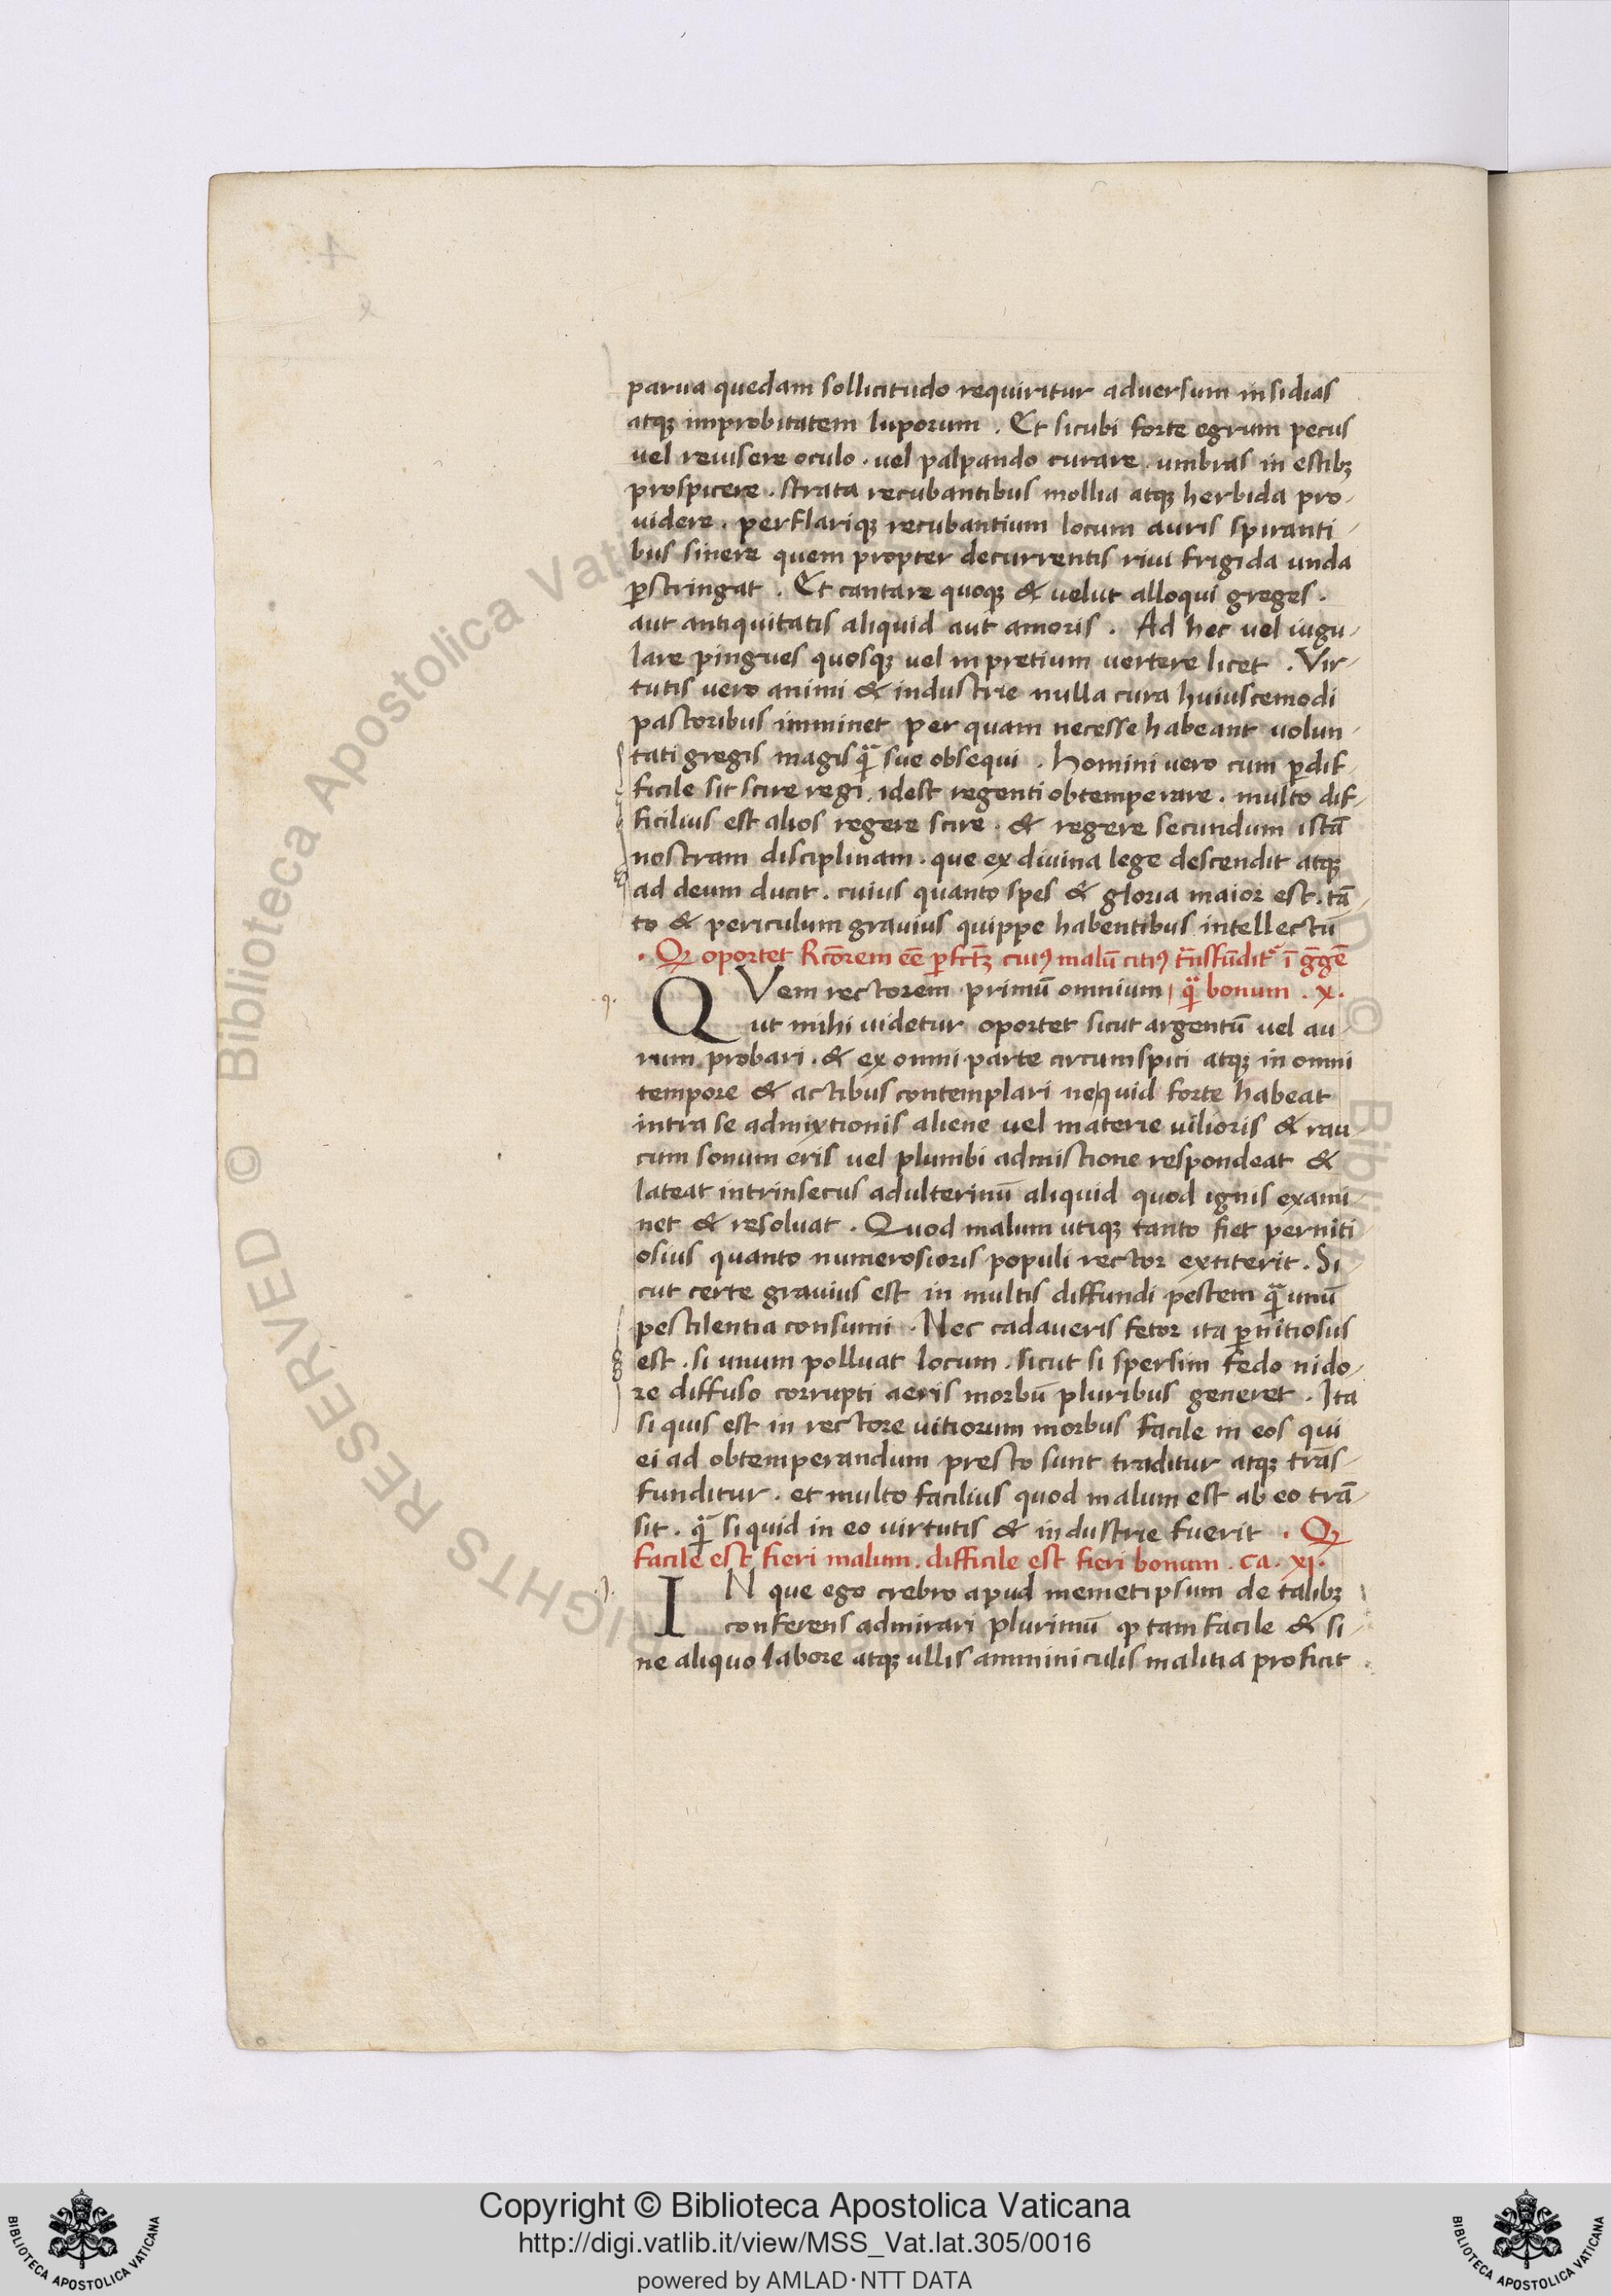 parua quedam sollicitudo requiritur adversum insidias
atqꝫ improbitatem luporum . Et sicubi forte egrum pecus
vel reuisere oculo . vel palpando curare . umbras in estibꝫ
prospicere . strata recubantibus mollia atqꝫ herbida pro-
uidere . perflariqꝫ recubantium locum auris spiranti-
bus sinere quem propter decurrentis riui frigida unda
ꝑstringat . Et cantare quoqꝫ & velut alloqui greges .
aut antiquitatis aliquid aut amoris . Ad hec vel iugu-
lare pingues quosqꝫ vel in pretium vertere licet . Vir-
tutis vero animi & industrie nulla cura huiuscemodi
pastoribus imminet per quam necesse habeant volun-
tati gregis magis qᷓ sue obsequi . Homini vero cum ꝑdif-
ficile sit scire regi . idest regenti obtemperare . multo dif-
ficilius est alios regere scire . & regere secundum istā
nostram disciplinam . que ex divina lege descendit atqꝫ
ad deum ducit . cuius quanto spes & gloria maior est . tā-
to & periculum gravius quippe habentibus intellectū
. Ꝙ oportet Rc̄orem ēē ꝑfct̄ꝫ cuiꝰ malū citiꝰ t̄nsfūdit᷑ ī gḡē
QVem rectorem primū omnium / qᷓ bonum . x .
9.
ut mihi videtur oportet sicut argentū vel au-
rum probari . & ex omni parte circumspici atqꝫ in omni
tempore & actibus contemplari nequid forte habeat
intra se admixtionis aliene vel materie vilioris & rau
cum sonum eris vel plumbi admistione respondeat &
lateat intrinsecus adulterinū aliquid quod ignis exami-
net & resoluat . Quod malum utiqꝫ tanto fiet perniti-
osius quanto numerosioris populi rector extiterit . Si
cut certe gravius est in multis diffundi pestem qᷓ unū
pestilentia consumi . Nec cadaveris fetor ita ꝑnitiosus
est . si unum polluat locum . sicut si spersim fedo nido-
re diffuso corrupti aeris morbū pluribus generet . Ita
si quis est in rectore vitiorum morbus facile in eos qui
ei ad obtemperandum presto sunt traditur atqꝫ trās-
funditur . et multo facilius quod malum est ab eo trā-
sit . qᷓ siquid in eo virtutis & industrie fuerit . Ꝙ
facile est fieri malum . difficile est fieri bonum . ca . xi .
IN que ego crebro apud memetipsum de talibꝫ
conferens admirari plurimū ꝙ tam facile & si-
ne aliquo labore atqꝫ ullis amminiculis malitia proficit
© Biblioteca Apostolica Vaticana
RIGHTS RESERVED
Copyright © Biblioteca Apostolica Vaticana
http://digi.vatlib.it/view/MSS_Vat.lat.305/0016
powered by AMLAD·NTT DATA
BIBLIOTECA APOSTOLICA VATICANA
BIBLIOTECA APOSTOLICA VATICANA